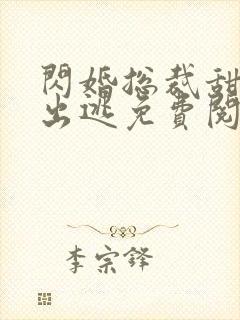 閃婚总裁甜
出逃免費閱
李宗鋒